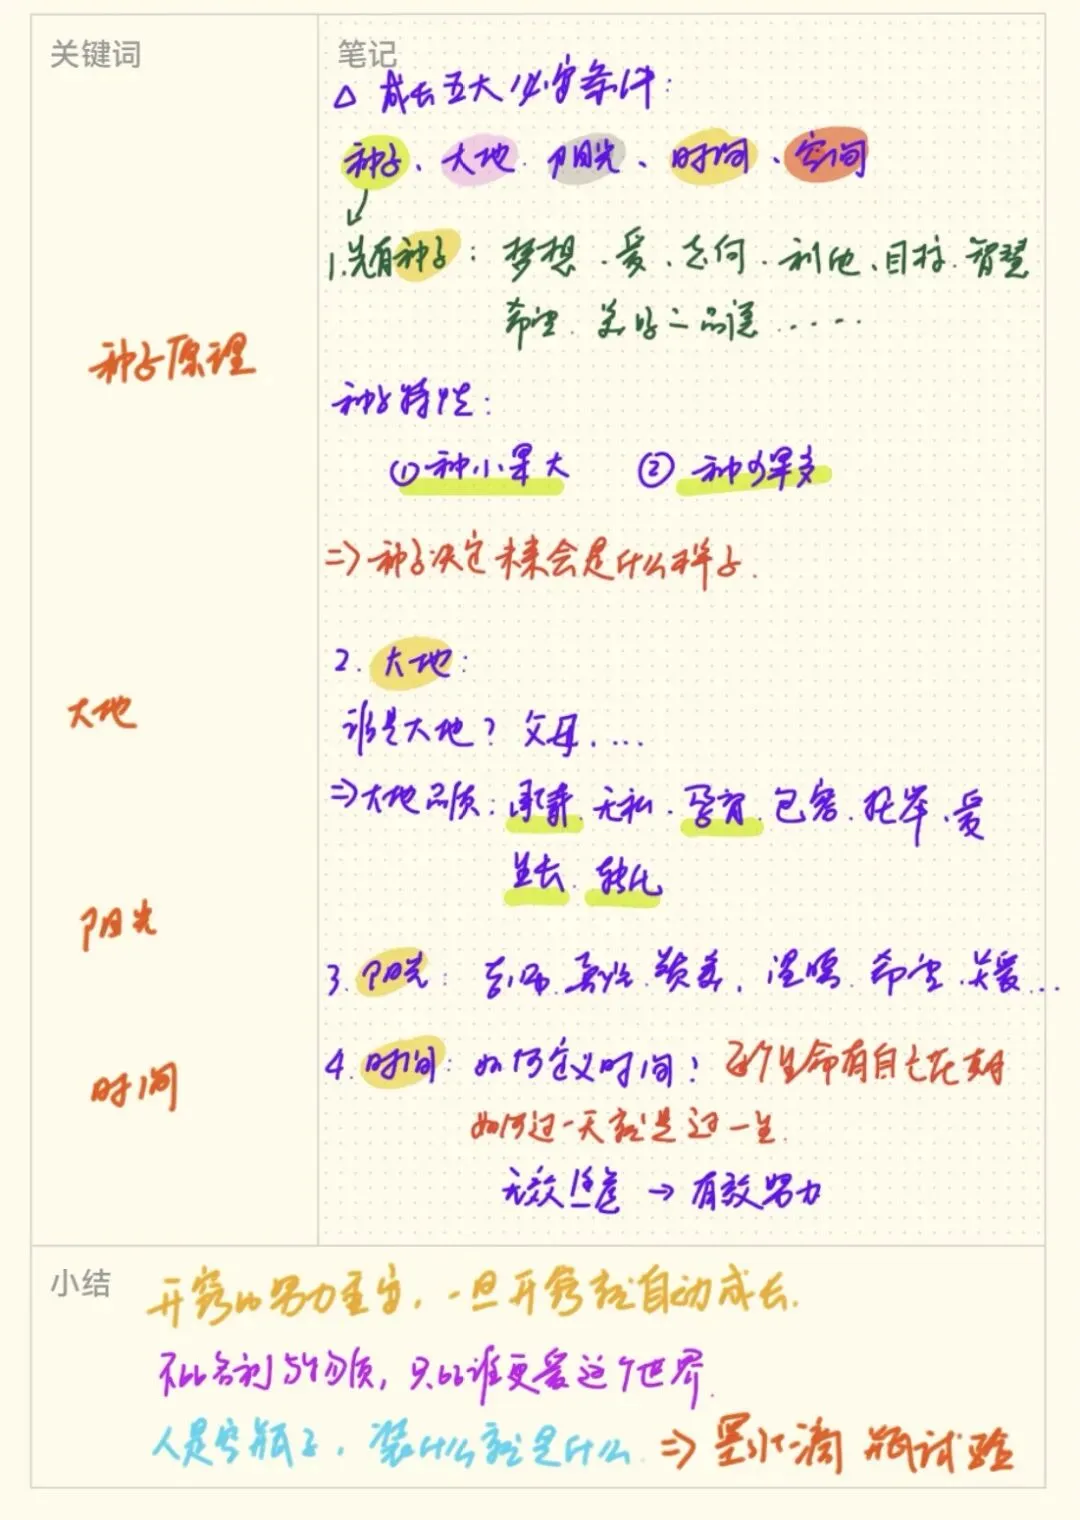 关键词
笔记
△ 成长五大必定条件:
种子、大地、阳光、时间、空间
1.先有种子: 梦想、爱、志向、利他、目标、智慧
希望、美好、品德……
种子原理
种子特性:
①种小果大 ②种少果多
=> 种子决定未来会是什么样子.
2. 大地:
大地
谁是大地? 父母....
=>大地品质: 承载、无私、孕育、包容、托举、爱
生长、转化
阳光
3. 阳光: 赞美、温暖、希望、关爱...
4. 时间: 如何定义时间? 每个生命有自己花期
时间
如何过一天就是过一生.
无效 → 有效努力
小结
开窍比努力重要, 一旦开窍就自动成长.
不比名利与物质, 只比谁更爱这个世界.
人是空瓶子, 装什么就是什么 => 墨水滴瓶试验